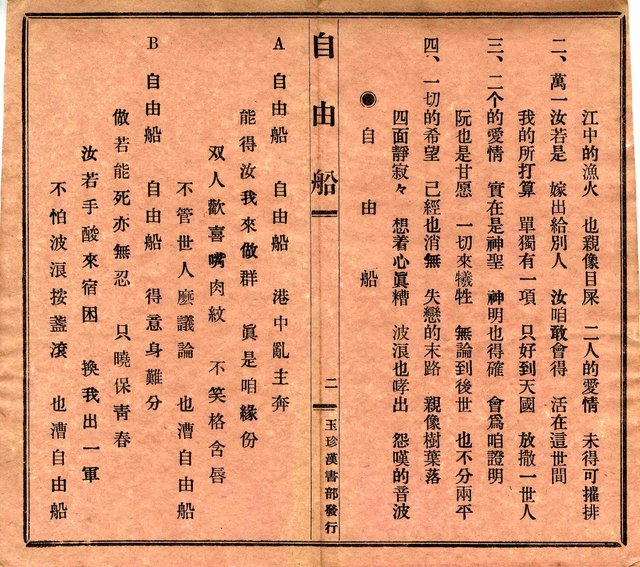 江中的漁火　也親像目屎　二人的愛情　未得可摧排
二、萬一汝若是　嫁出給別人　汝咱敢會得　活在這世間
我的所打算　單獨有一項　只好到天國　放撒一世人
三、二个的愛情　實在是神聖　神明也得確　會爲咱證明
阮也是甘愿　一切來犧牲　無論到後世　也不分兩平
四、一切的希望　己經也消無　失戀的末路　親像樹葉落
四面靜寂々　想着心眞糟　波浪也哮出　怨嘆的音波
●自由船
自由船
二
玉珍漢書部發行
A 自由船　自由船　港中亂主奔
能得汝我來做群　眞是咱緣份
双人歡喜嘴肉紋　不笑格含唇
不管世人麽議論　也漕自由船
B 自由船　自由船　得意身難分
做若能死亦無忍　只曉保青春
汝若手酸來宿困　換我出一軍
不怕波浪按盞滾　也漕自由船